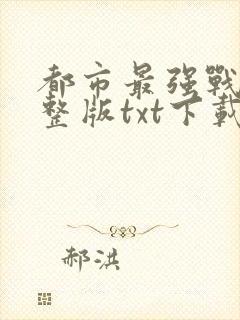 都市最强戰
整版txt下載
郝洪